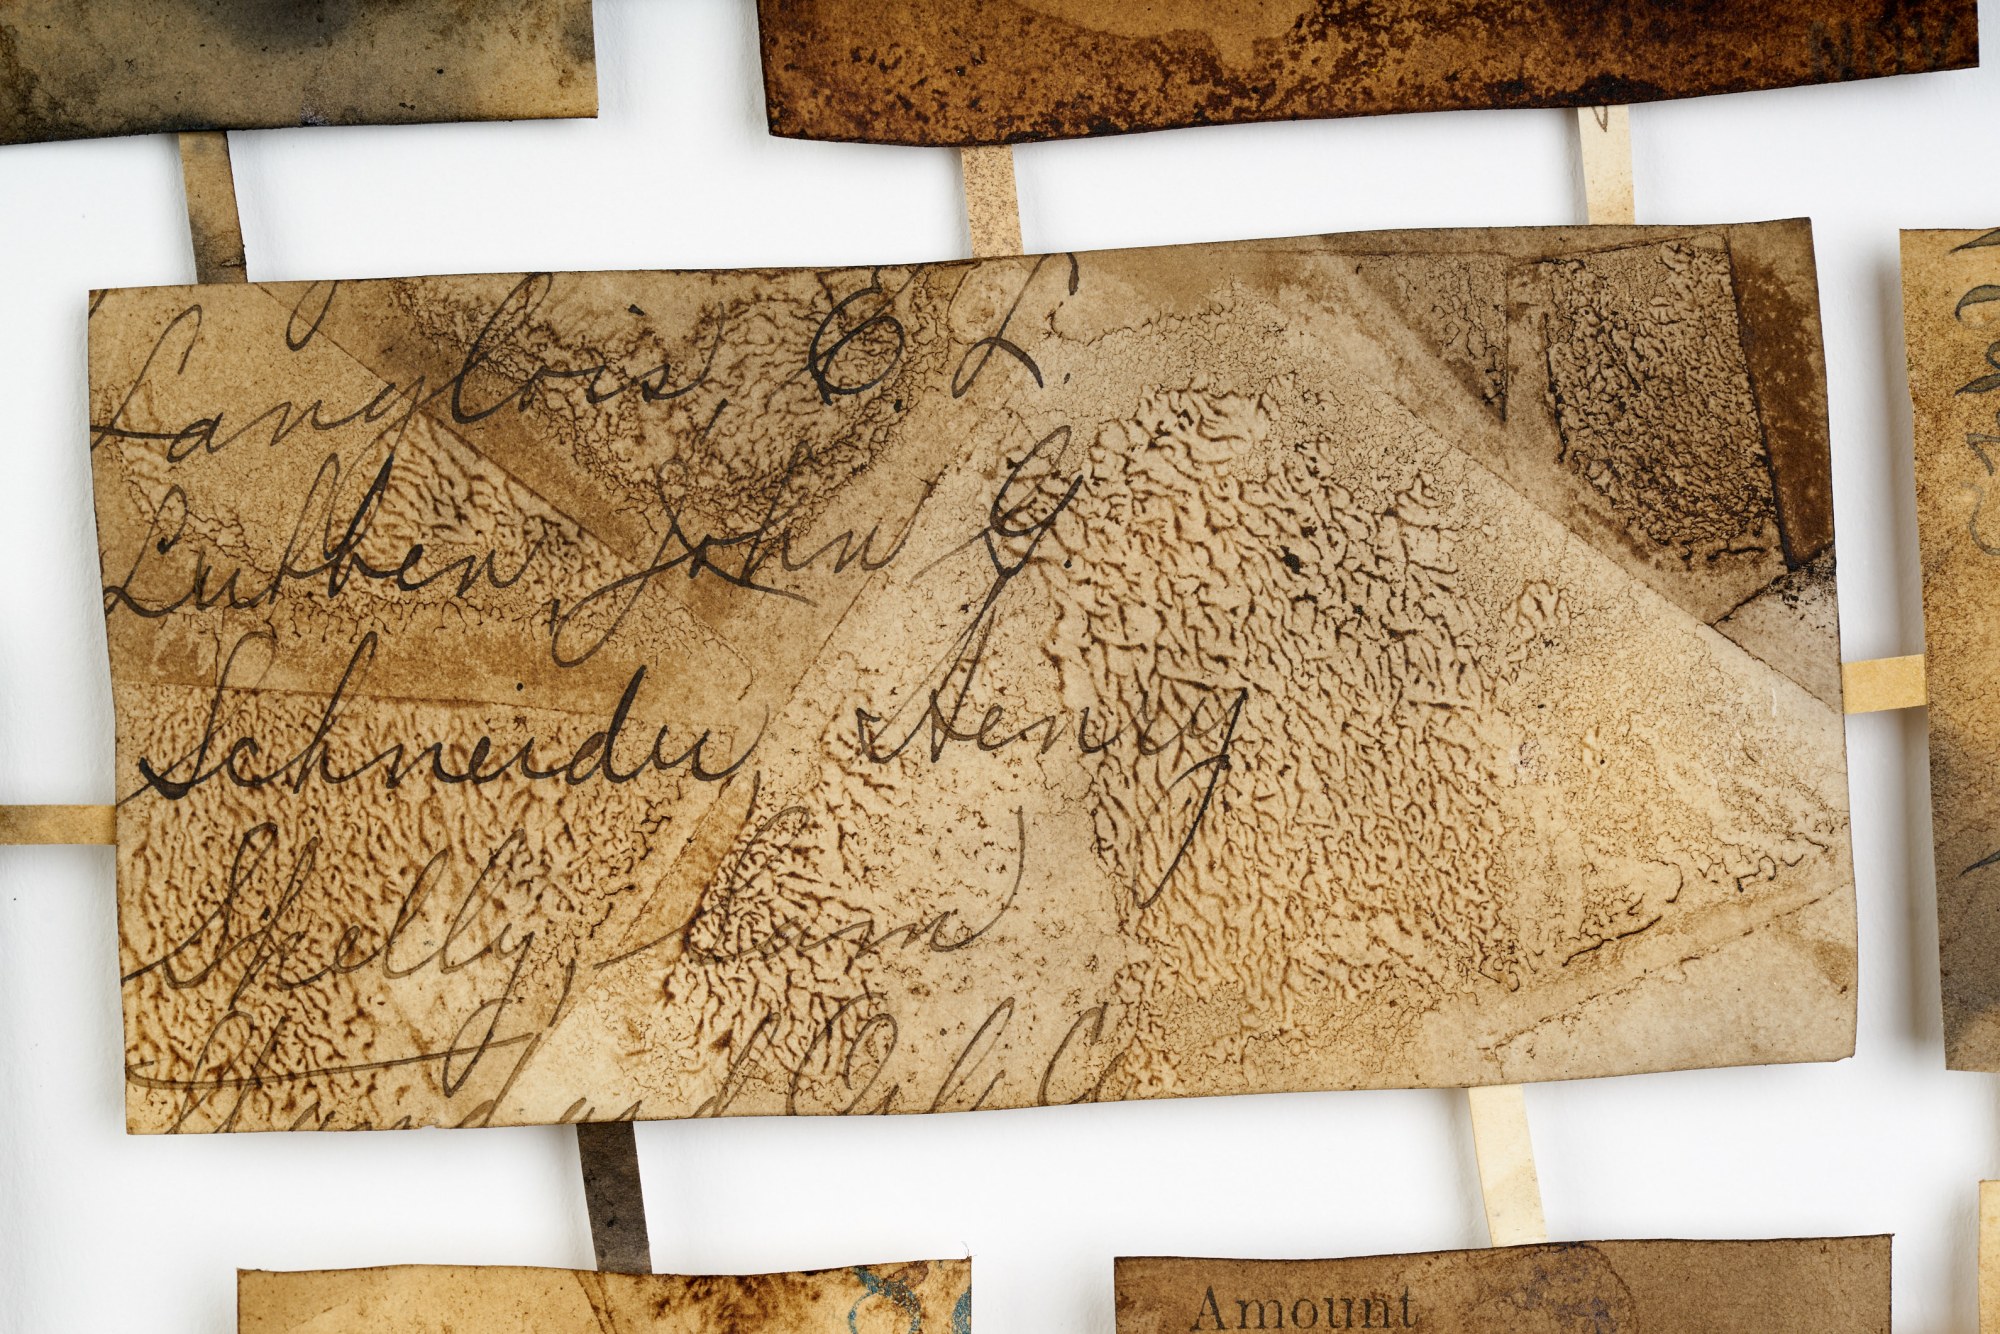 Langlois, E. L.
Lubben, John G.
Schneider, Henry
Skelly, Sam
Amount